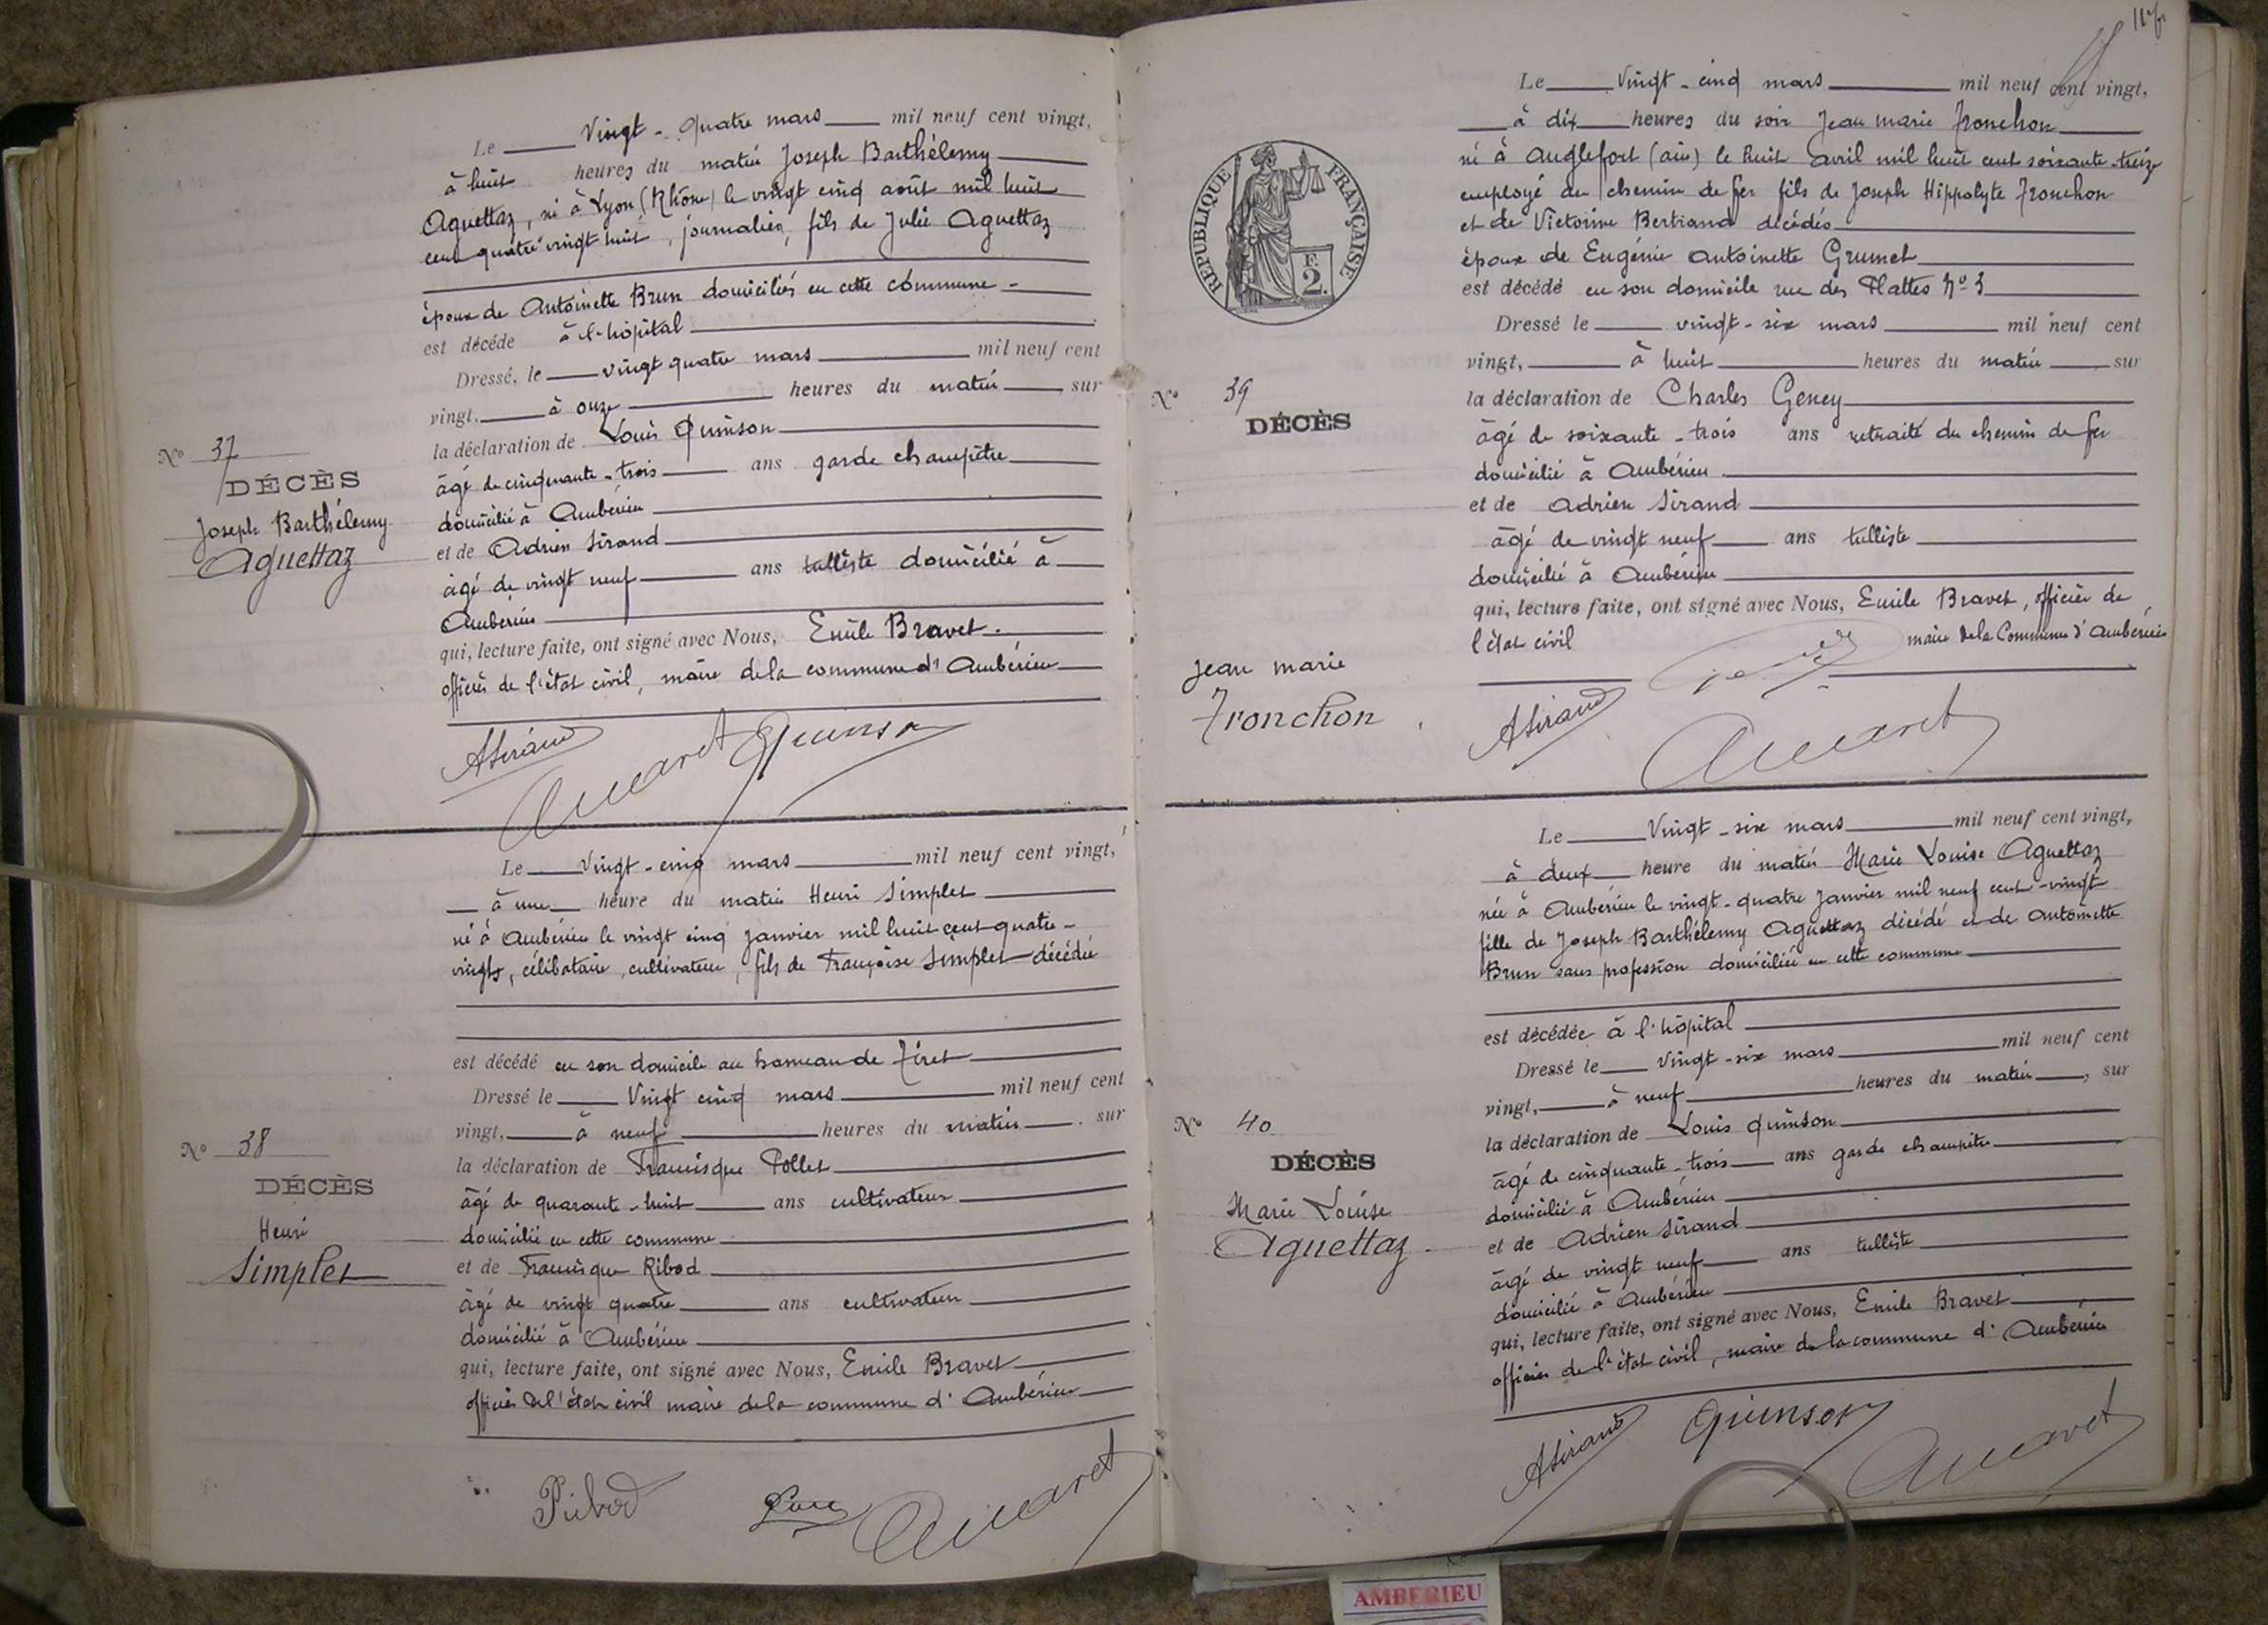 Le Vingt-quatre mars mil neuf cent vingt,
à huit heures du matin Joseph Barthélemy
Aguettaz, né à Lyon (Rhône) le vingt cinq août mil huit
cent quatre vingt huit, journalier, fils de Julie Aguettaz
époux de Antoinette Brun domiciliés en cette commune -
est décédé à l'hôpital
Dressé, le vingt quatre mars mil neuf cent
vingt, à onze heures du matin, sur
la déclaration de Louis Quinson
âgé de cinquante-trois ans garde champêtre
domicilié à Ambérieu
et de Adrien Sirand
âgé de vingt neuf ans tulliste domicilié à
Ambérieu
qui, lecture faite, ont signé avec Nous, Emile Bravet.
officier de l'état civil, maire de la commune d'Ambérieu
ASirand Quinson
N° 37
DÉCÈS
Joseph Barthélemy
Aguettaz
Le Vingt-cinq mars mil neuf cent vingt,
à une heure du matin Henri Simplet
né à Ambérieu le vingt cinq janvier mil huit cent quatre-
vingts, célibataire, cultivateur, fils de Françoise Simplet décédée
est décédé en son domicile au hameau de Tiret
Dressé le Vingt cinq mars mil neuf cent
vingt, à neuf heures du matin, sur
la déclaration de Francisque Pollet
âgé de quarante-huit ans cultivateur
domicilié en cette commune
et de Francisque Ribod
âgé de vingt quatre ans cultivateur
domicilié à Ambérieu
qui, lecture faite, ont signé avec Nous, Emile Bravet
officier de l'état civil maire de la commune d'Ambérieu
Ribod
N° 38
DÉCÈS
Henri
Simplet
Le Vingt-cinq mars mil neuf cent vingt,
à dix heures du soir Jean Marie Fronchon
né à Anglefort (Ain) le huit avril mil huit cent soixante-treize
employé de chemin de fer fils de Joseph Hippolyte Fronchon
et de Victorine Bertrand décédés
époux de Eugénie Antoinette Grumet
est décédé en son domicile rue des Plattes N° 3
Dressé le vingt-six mars mil neuf cent
vingt, à huit heures du matin sur
la déclaration de Charles Geney
âgé de soixante-trois ans retraité du chemin de fer
domicilié à Ambérieu
et de Adrien Sirand
âgé de vingt neuf ans tulliste
domicilié à Ambérieu
qui, lecture faite, ont signé avec Nous, Emile Bravet, officier de
l'état civil maire de la Commune d'Ambérieu
ASirand
RÉPUBLIQUE FRANÇAISE
F.
2.
N° 39
DÉCÈS
Jean Marie
Fronchon
Le Vingt-six mars mil neuf cent vingt,
à deux heure du matin Marie Louise Aguettaz
née à Ambérieu le vingt-quatre janvier mil neuf cent-vingt
fille de Joseph Barthélemy Aguettaz décédé et de Antoinette
Brun sans profession domiciliée en cette commune
est décédée à l'hôpital
Dressé le Vingt-six mars mil neuf cent
vingt, à neuf heures du matin, sur
la déclaration de Louis Quinson
âgé de cinquante-trois ans garde champêtre
domicilié à Ambérieu
et de Adrien Sirand
âgé de vingt neuf ans tulliste
domicilié à Ambérieu
qui, lecture faite, ont signé avec Nous, Emile Bravet
officier de l'état civil, maire de la commune d'Ambérieu
ASirand Quinson
N° 40
DÉCÈS
Marie Louise
Aguettaz
AMBERIEU